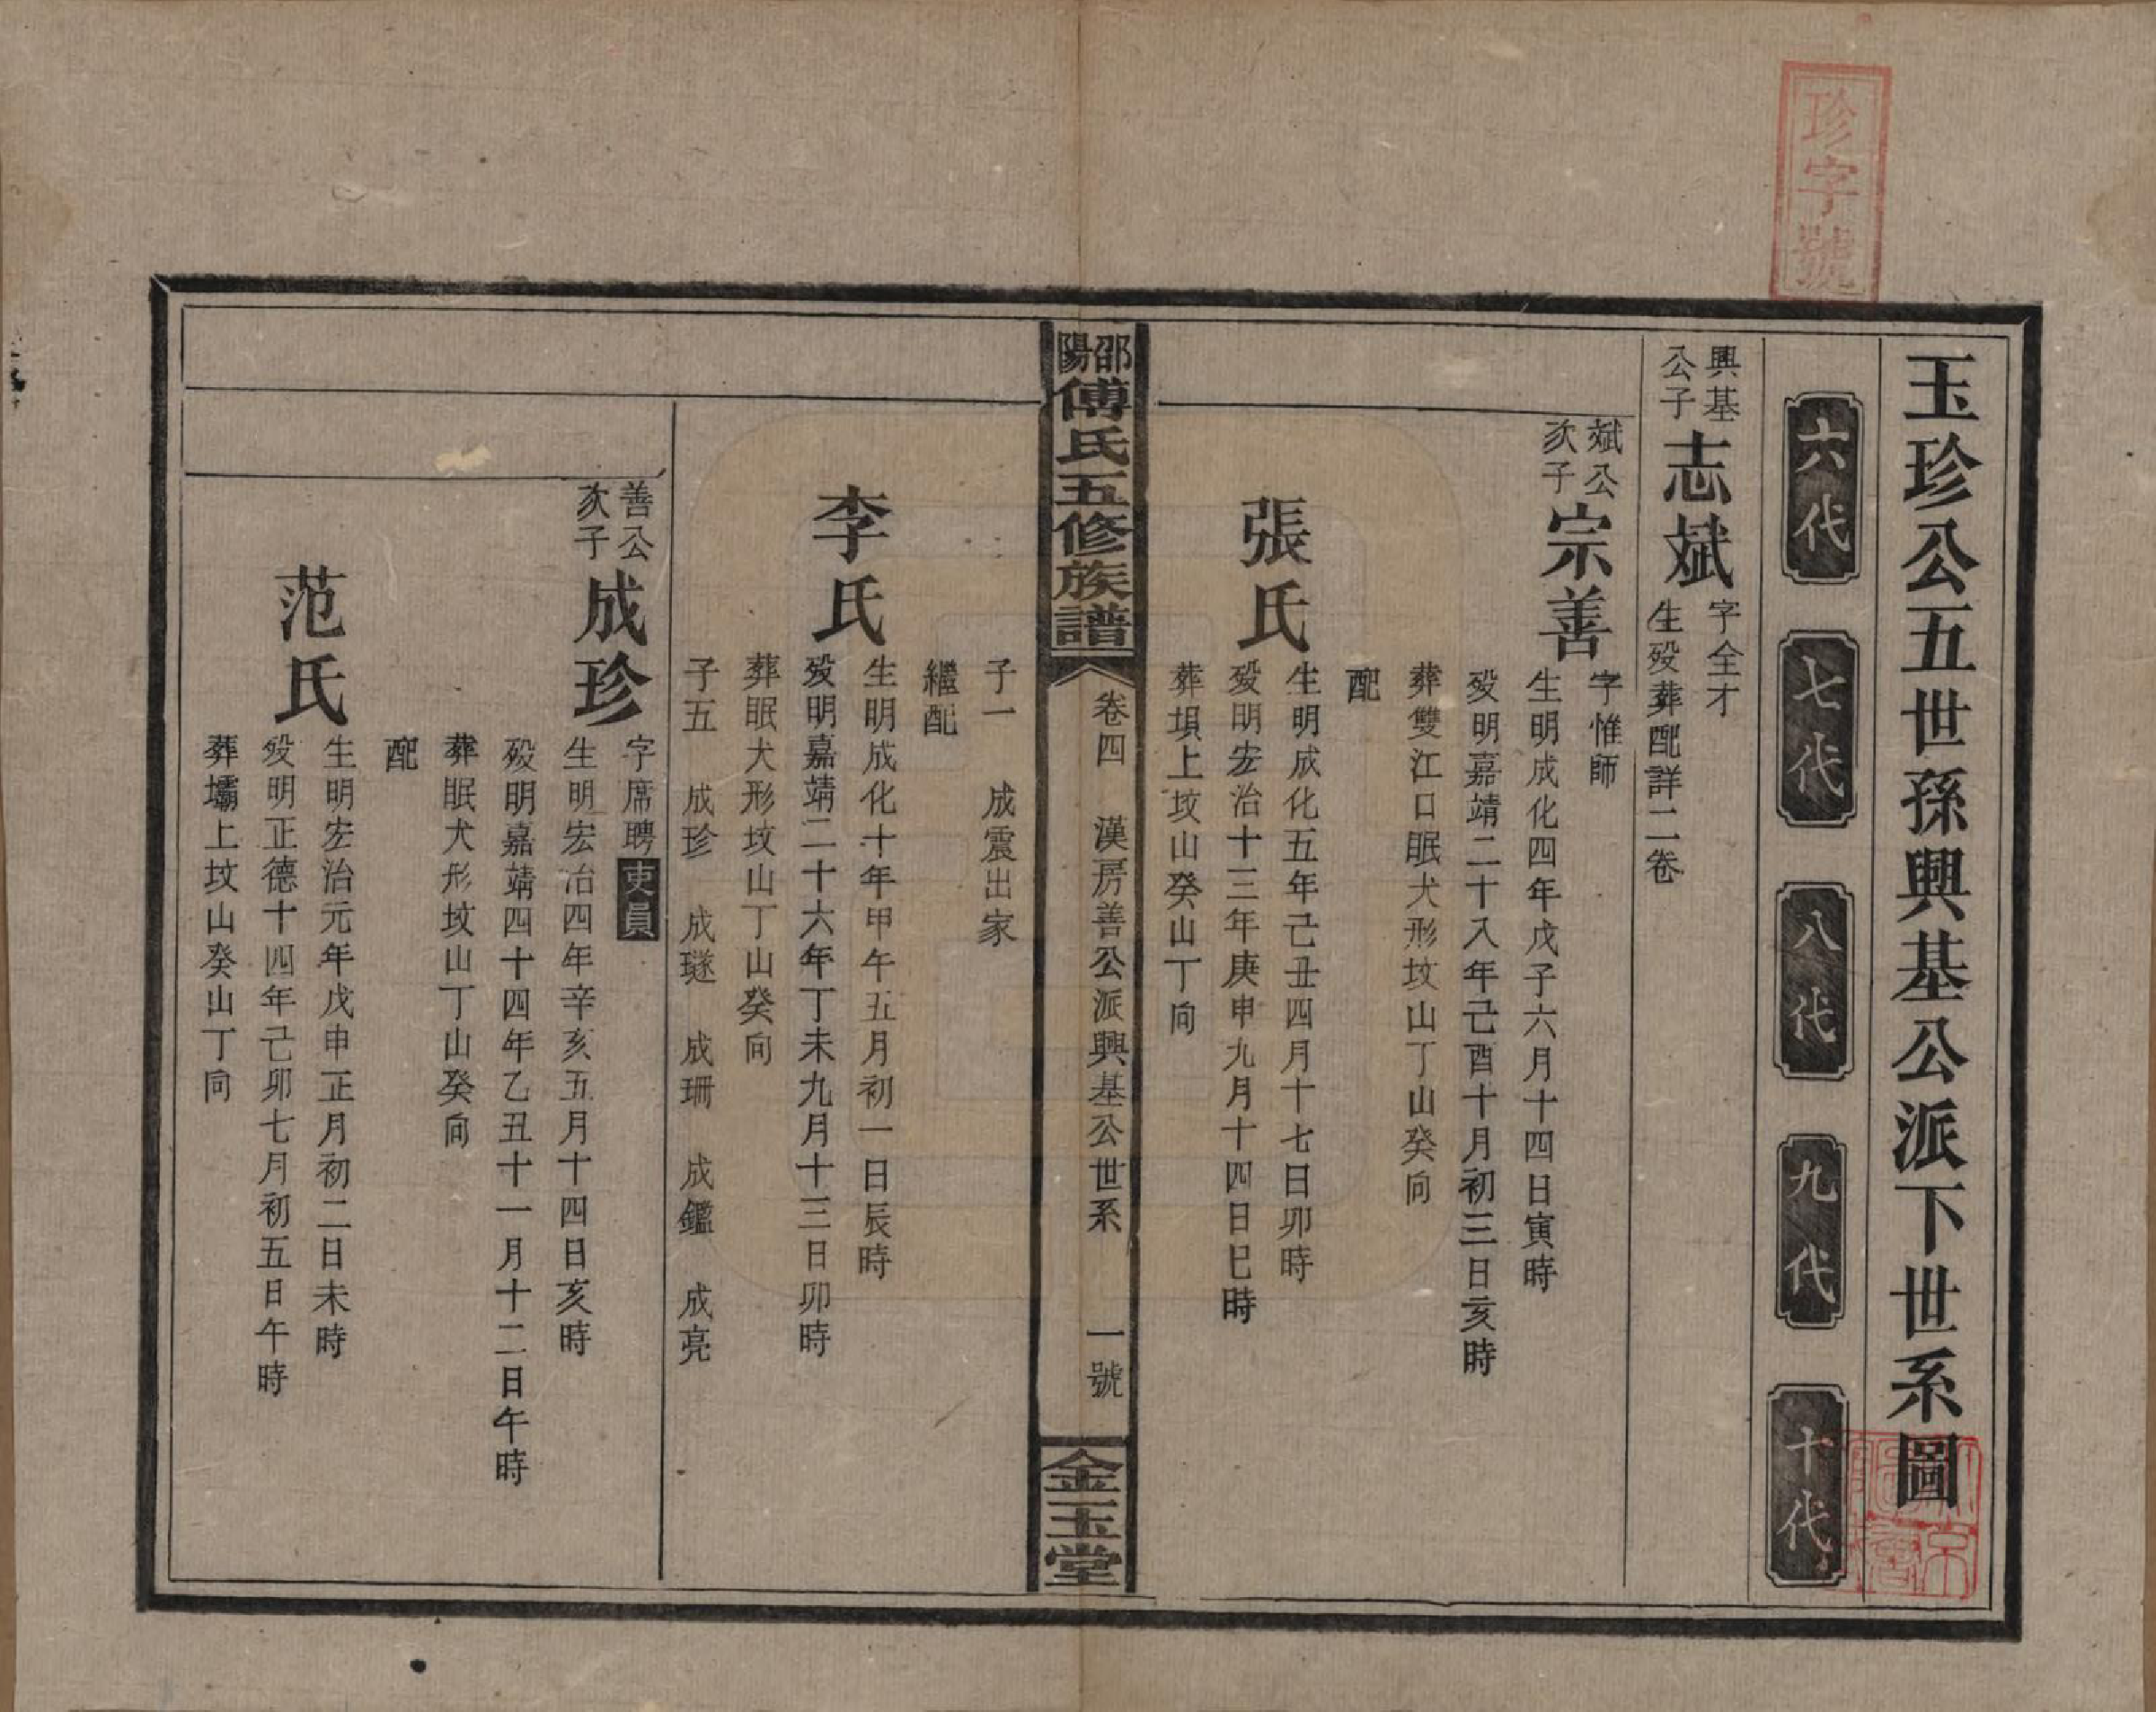 珍字號
玉珍公五世孫興基公派下世系圖
六代
七代
八代
九代
十代
興基
公子
志斌
字全才
生歿葬配詳二卷
斌公
次子
宗善
字惟師
生明成化四年戊子六月十四日寅時
歿明嘉靖二十八年己酉十月初三日亥時
葬雙江口眠犬形坟山丁山癸向
配
張氏
生明成化五年己丑四月十七日卯時
歿明宏治十三年庚申九月十四日巳時
葬垻上坟山癸山丁向
邵陽
傅氏五修族譜
卷四 漢房善公派興基公世系 一號
金玉堂
子一 成震出家
繼配
李氏
生明成化十年甲午五月初一日辰時
歿明嘉靖二十六年丁未九月十三日卯時
葬眠犬形坟山丁山癸向
子五 成珍 成璲 成珊 成鑑 成亮
善公
次子
成珍
字席聘吏員
生明宏治四年辛亥五月十四日亥時
歿明嘉靖四十四年乙丑十一月十二日午時
葬眠犬形坟山丁山癸向
配
范氏
生明宏治元年戊申正月初二日未時
歿明正德十四年己卯七月初五日午時
葬壩上坟山癸山丁向